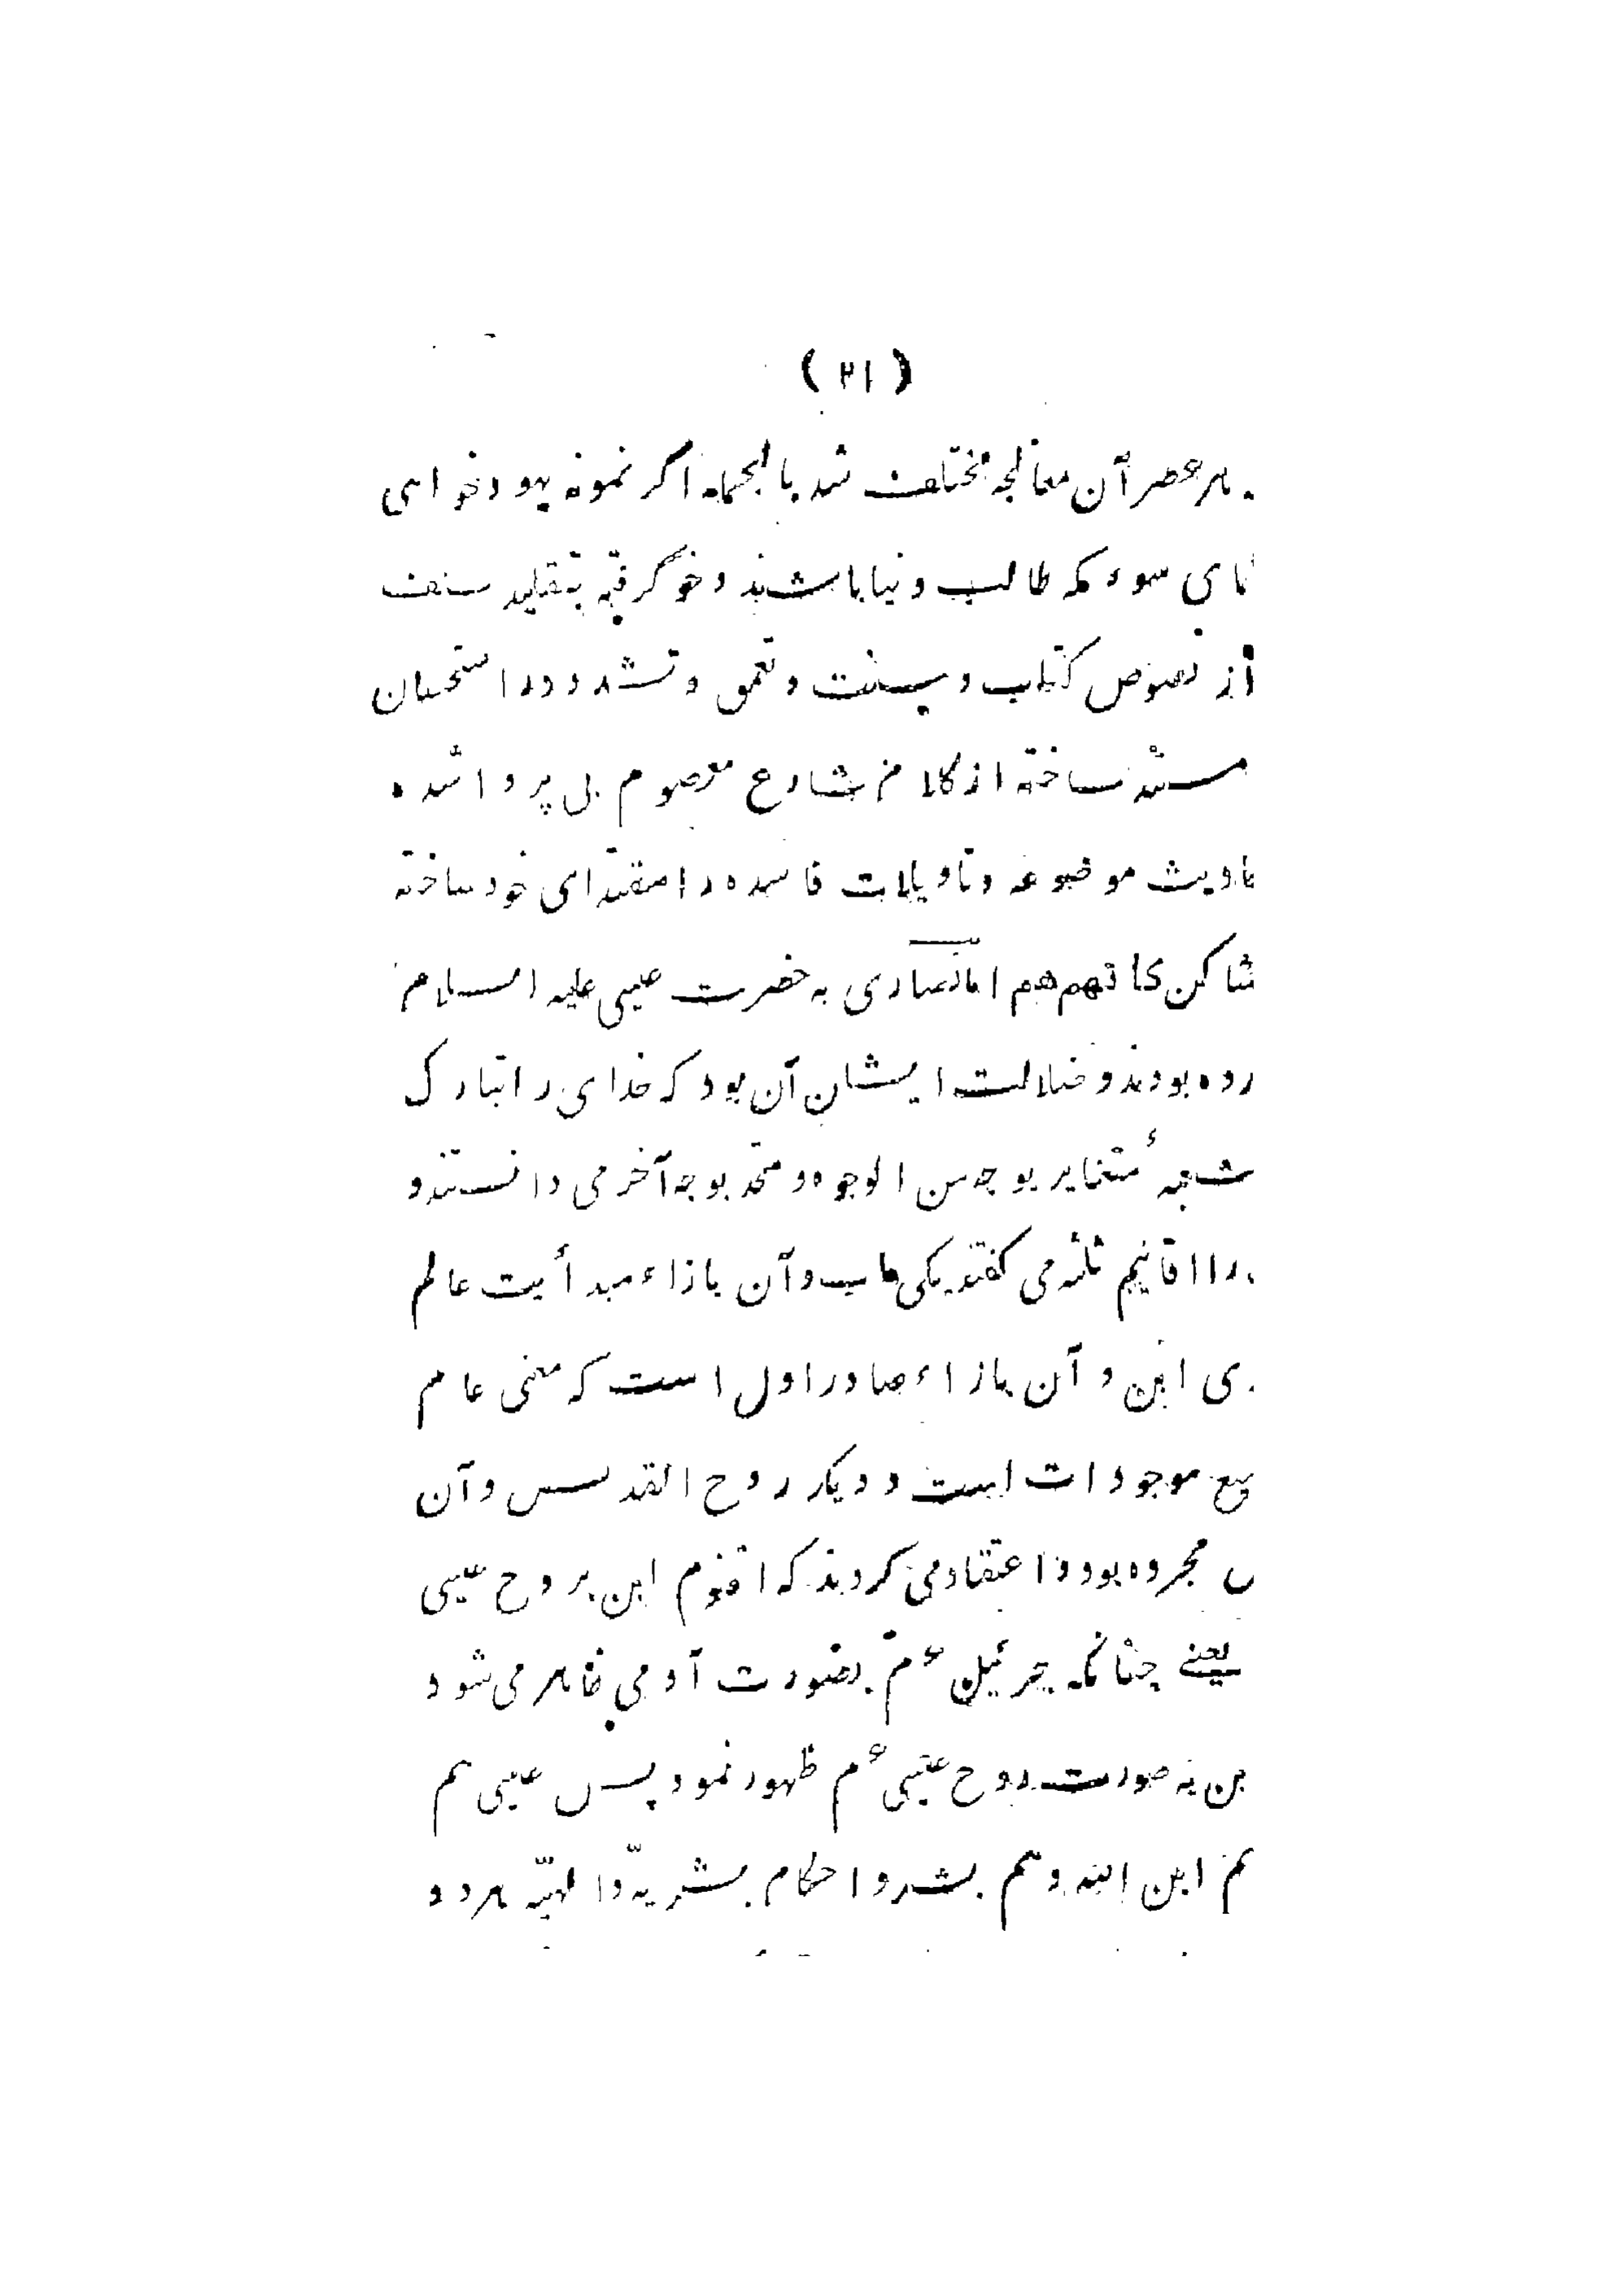 ( ۲۱ )
هر عصر آن معالجه مختلف شد بالجمله اگر نمونه یهود خواهی
مای سوء که طالب دنیا باشند و خو گرفته بتقلید سلف
از نصوص کتاب و سنت و تعمق و تشدد و در استحسان
مستند ساخته از کلام شارع معصوم بی پروا شده
ادیث موضوعه و تاویلات فاسده را مقتدای خود ساخته
شا کن کانهم هم اما نصاری به حضرت عیسی علیه السلام
رده بودند و ضلالت ایشان آن بود که خدای را تبارک
شعبه متغایر بوجه من الوجوه و متحد بوجه آخر می دانستند و
را اقانیم ثلثه می گفتند یکی اب و آن بازاء مبدأیت عالم
ی ابن و آن بازاء صادر اول است که معنی عام
یع موجودات است و دیگر روح القدس و آن
ل مجرده بود و اعتقاد می کردند که اقنوم ابن بروح عیسی
یعنے چنانکه جبرئیل ع م بصورت آدمی ظاهر می شود
بن به صورت روح عیسی ع م ظهور نمود پس عیسی هم
هم ابن الله و هم بشر و احکام بشریّه و الهیّه هر دو